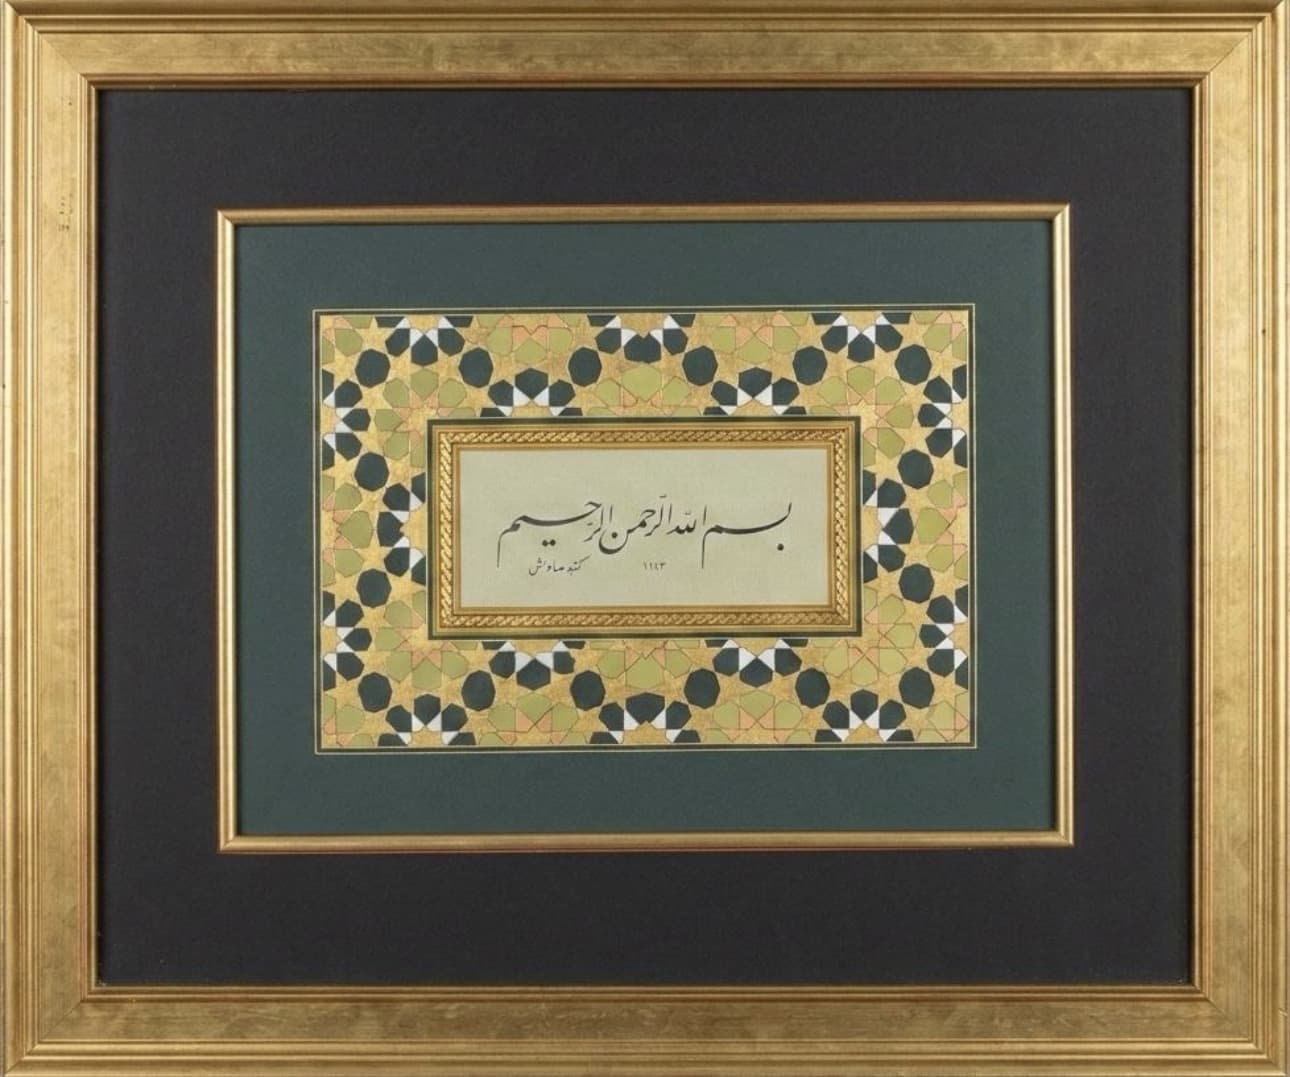 بسم الله الرحمن الرحيم
١١٤٣ كتبه